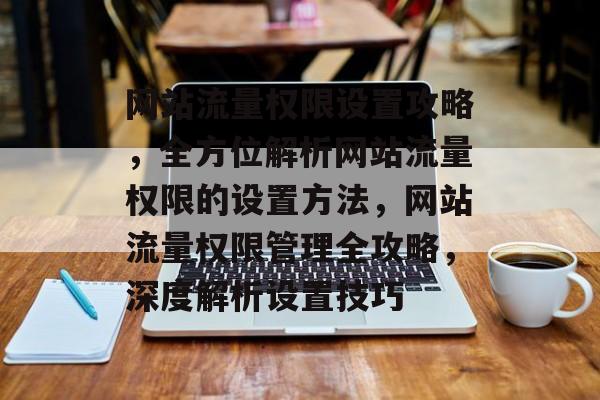 网站流量权限设置攻略
，全方位解析网站流量
权限的设置方法，网站
流量权限管理全攻略，
深度解析设置技巧